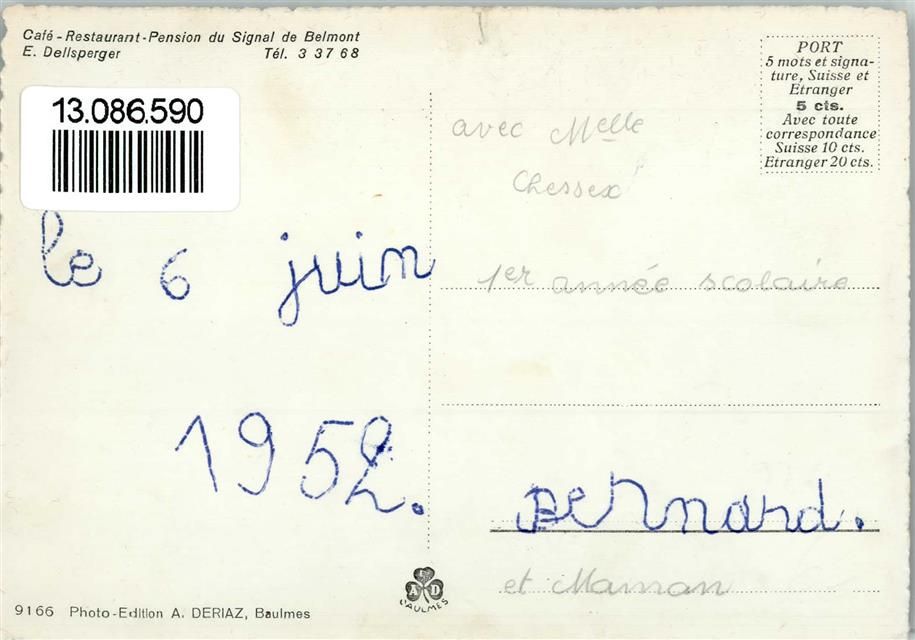 Café-Restaurant-Pension du Signal de Belmont
E. Dellsperger Tél. 3 37 68
13.086.590
PORT
5 mots et signa-
ture, Suisse et
Etranger
5 cts.
Avec toute
correspondance
Suisse 10 cts.
Etranger 20 cts.
le 6 juin
1952.
avec Melle
Chessex
1er année scolaire
Bernard.
et Maman
A E D
BAULMES
9166 Photo-Edition A. DERIAZ, Baulmes